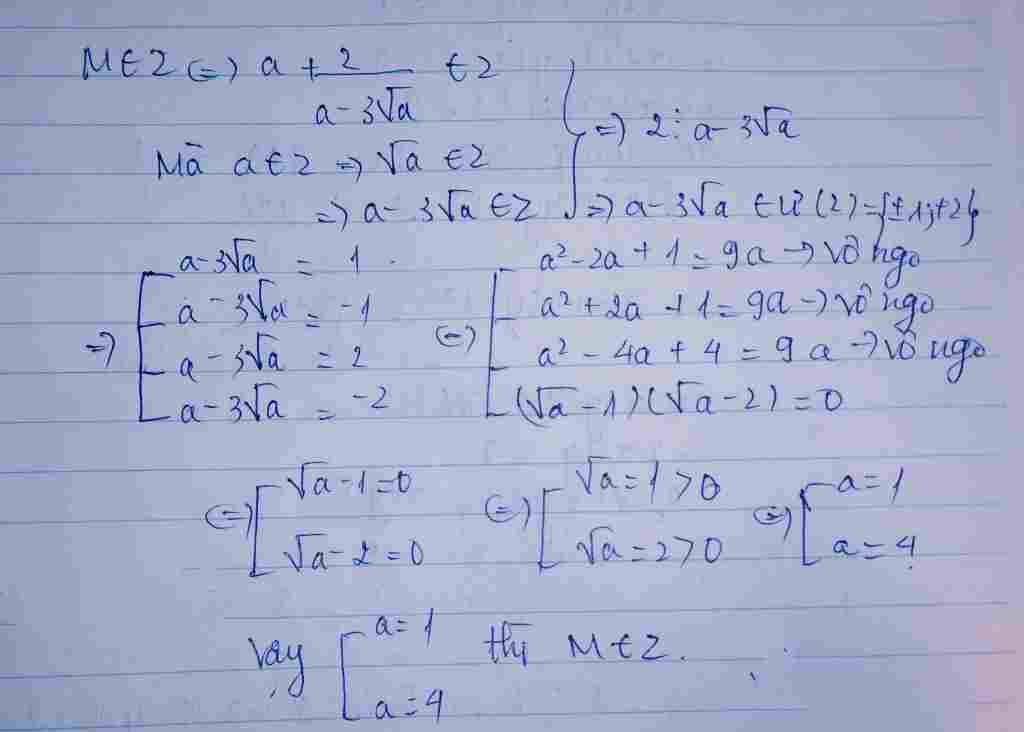 M ∈ Z (=) a + 2/(a - 3√a) ∈ Z
Mà a ∈ Z => √a ∈ Z
=> a - 3√a ∈ Z
=> 2 ⋮ a - 3√a
=> a - 3√a ∈ Ư (2) = {±1; ±2}
=> [ a - 3√a = 1
a - 3√a = -1
a - 3√a = 2
a - 3√a = -2
(=) [ a² - 2a + 1 = 9a -> vô ngo
a² + 2a + 1 = 9a -> vô ngo
a² - 4a + 4 = 9a -> vô ngo
(√a - 1)(√a - 2) = 0
(=) [ √a - 1 = 0
√a - 2 = 0
(=) [ √a = 1 > 0
√a = 2 > 0
(=) [ a = 1
a = 4
Vậy [ a = 1
a = 4
thì M ∈ Z.